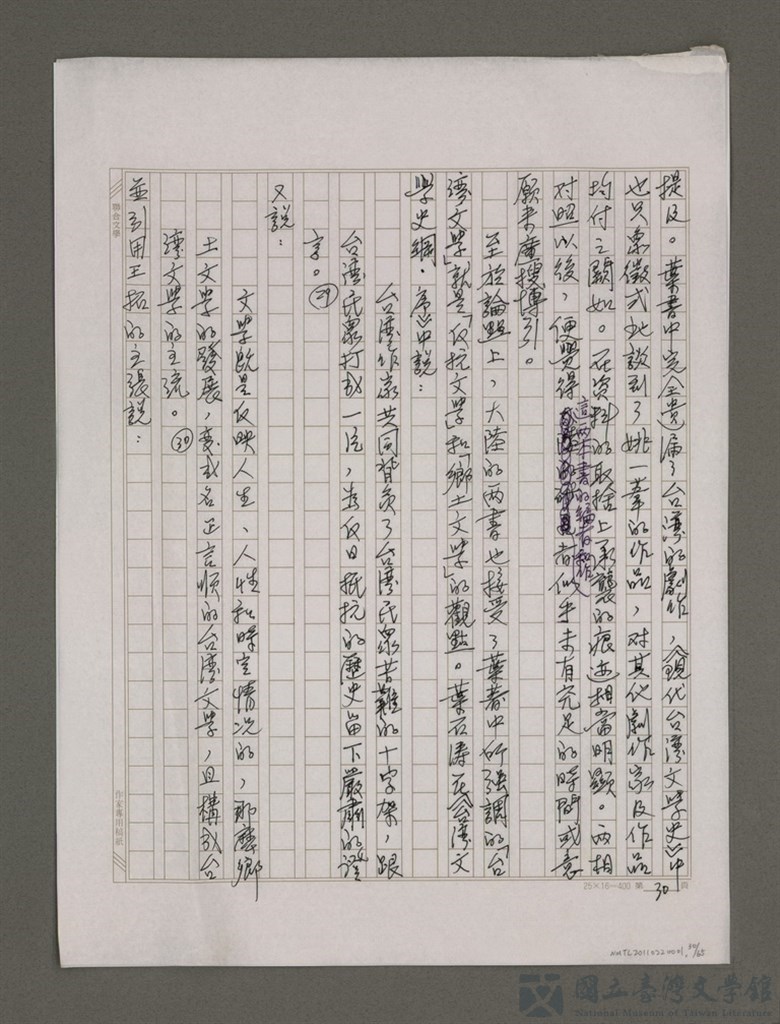 提及。葉書中完全遺漏了台灣的劇作，《現代台灣文學史》中
也只象徵式地談到了姚一葦的作品，对其他劇作家及作品
均付之闕如。在資料的取捨上承襲的痕迹相當明顯。两相
对照以後，便覺得這两本書的編者和作者似乎未有充足的時間或意
願来廣搜博引。
至於論點上，大陸的两書也接受了葉著中所强調的「台
灣文學」就是「反抗文學」和「鄉土文學」的觀點。葉石濤在《台灣文
學史綱·序》中説：
台灣作家共同背負了台灣民眾苦難的十字架，跟
台灣民眾打成一片，為反日抵抗的歷史留下嚴肅的證
言。㉙
又説：
文學既是反映人生、人性和時空情况的，那麼鄉
土文學的發展，变成名正言順的台灣文學，且構成台
灣文學的主流。㉚
並引用王拓的主張說：
聯合文學
作家專用稿紙
25×16=400 第 30 頁
NMTL20110220001, 30/65
國立臺灣文學館
National Museum of Taiwan Literature